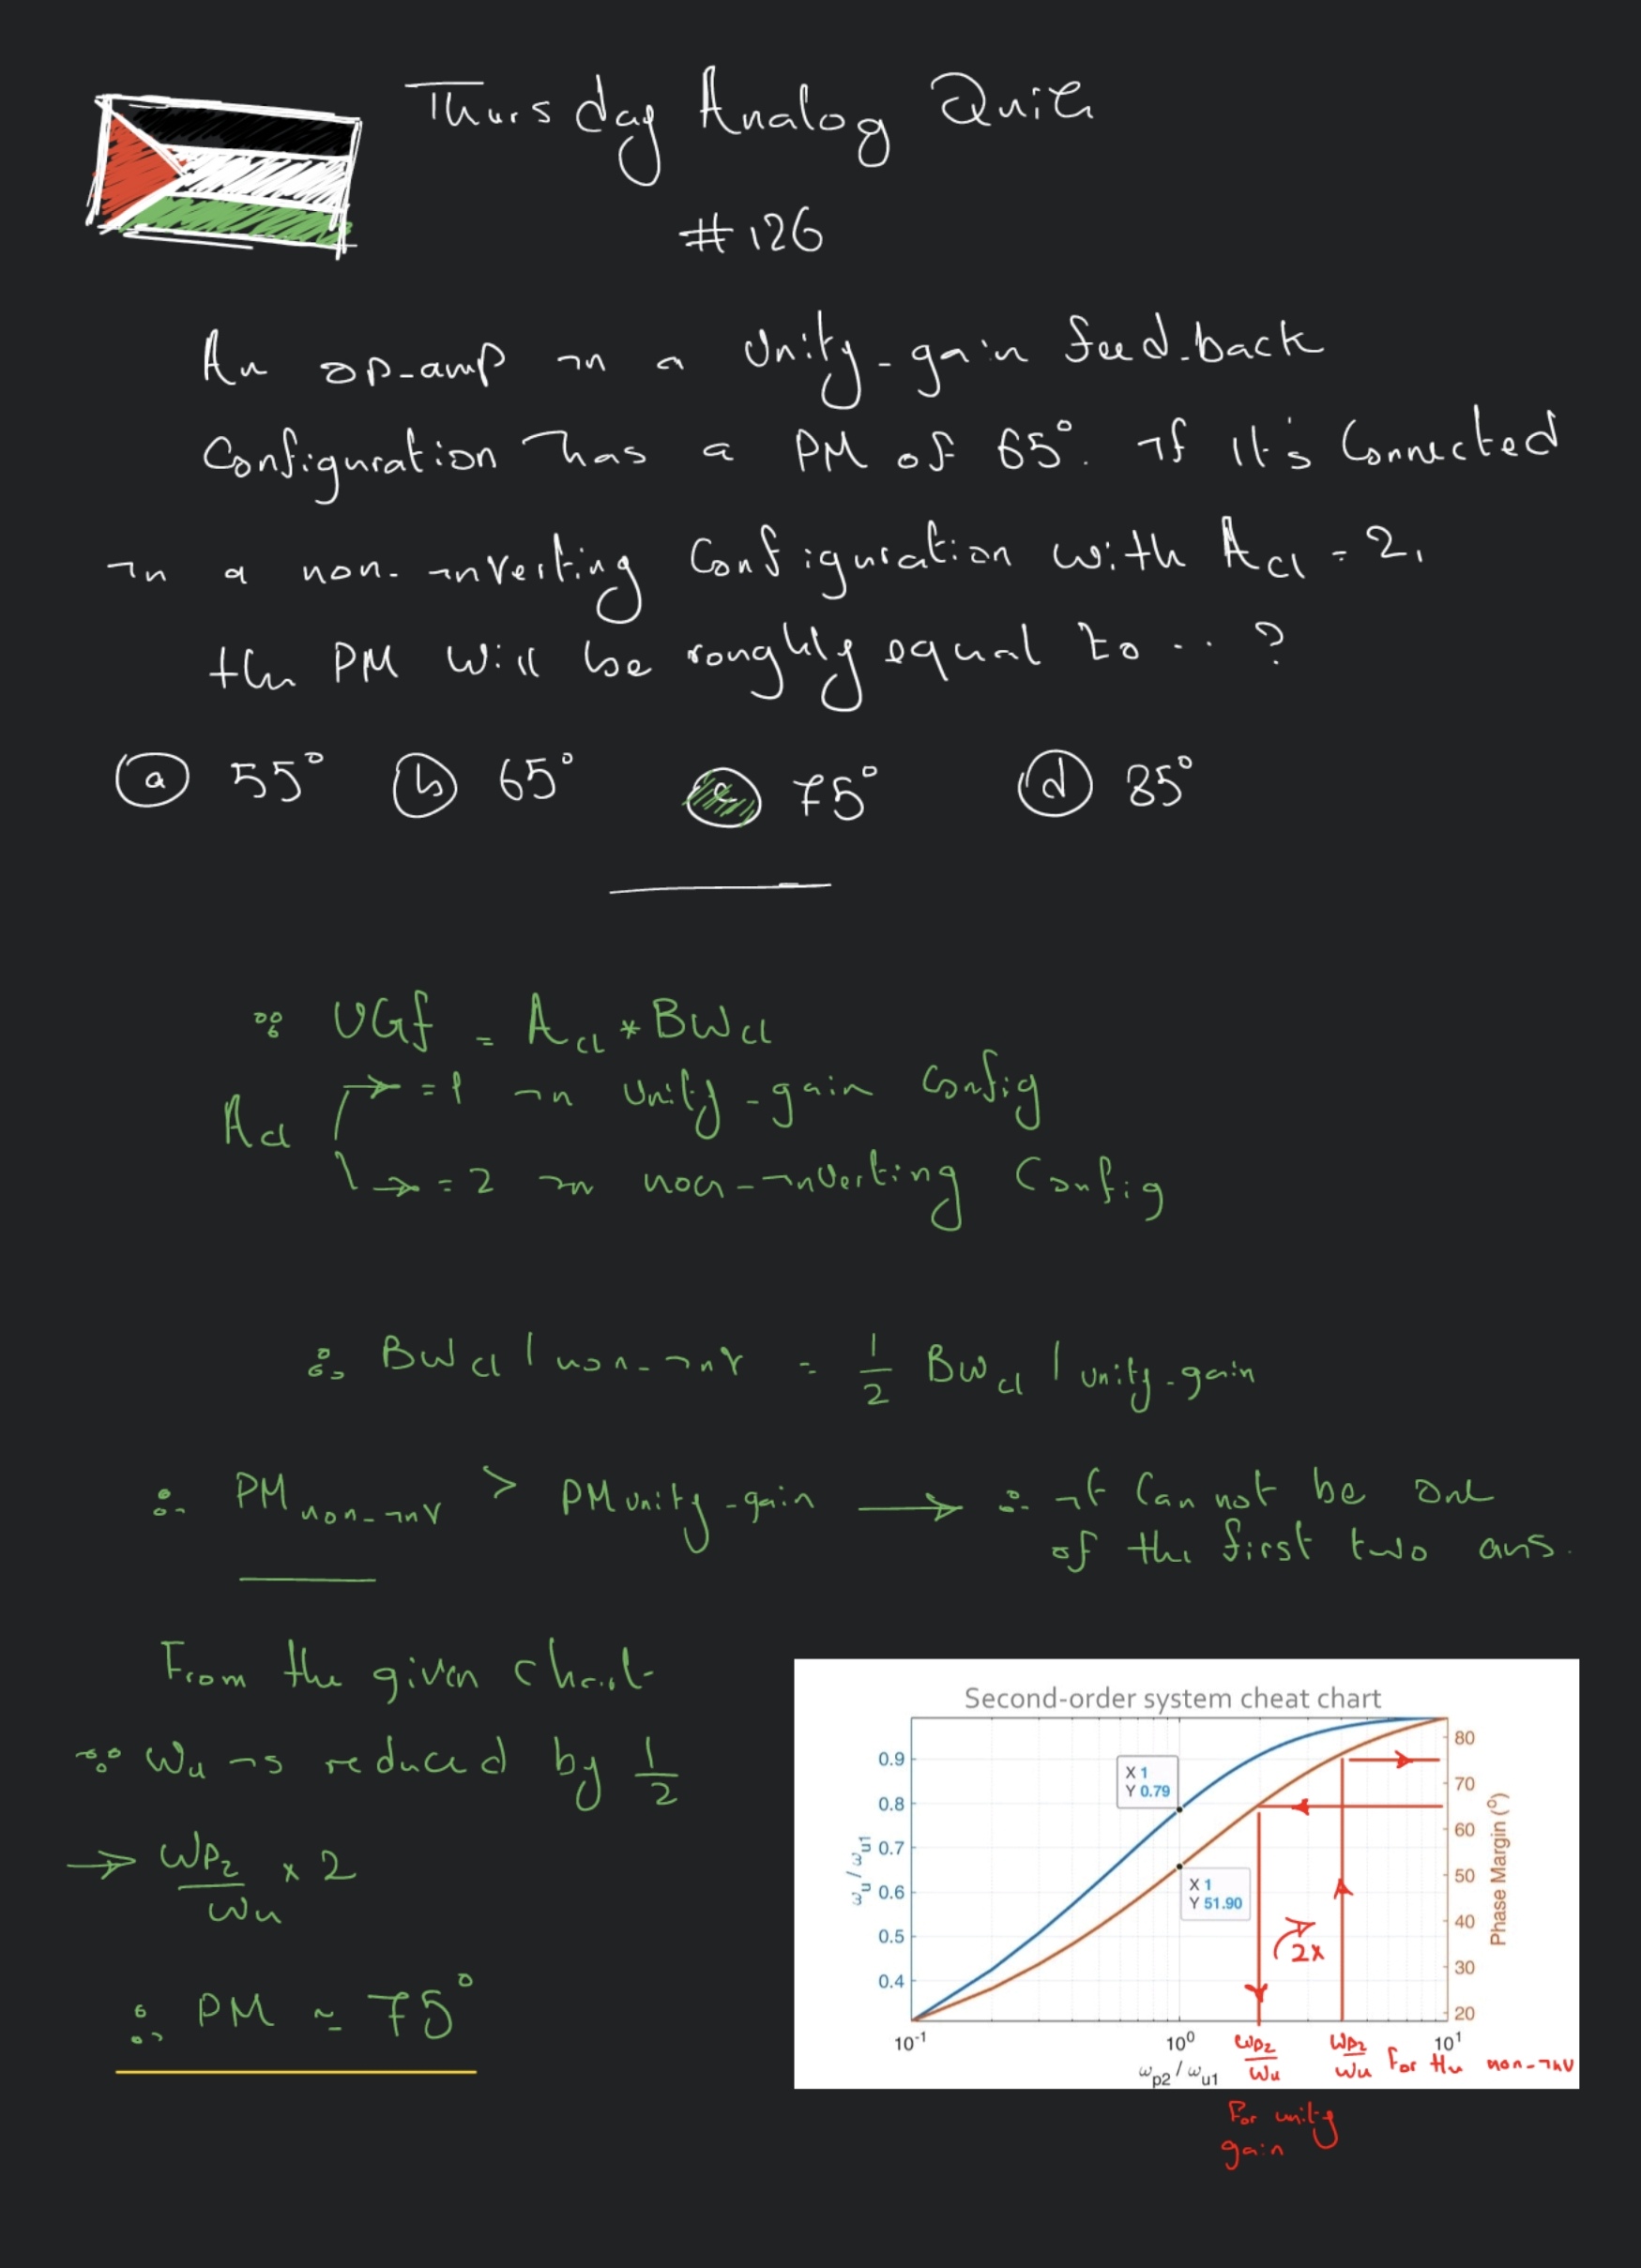 Thursday Analog Quiz
#126
An op-amp in a Unity-gain feed-back
Configuration has a PM of 65°. if it's Connected
in a non-inverting Configuration with Acl = 2,
the PM will be roughly equal to ... ?
(a) 55° (b) 65° (c) 75° (d) 85°
∵ UGf = ACL * BWCL
Acl → = 1 in Unity-gain Config
→ = 2 in non-inverting Config
∴ BWcl | non-inv = 1/2 BWcl | unity-gain
∴ PM non-inv > PM unity-gain → ∴ it Can not be one
of the first two ans.
From the given chart
∵ Wu is reduced by 1/2
→ WP2/Wu x 2
∴ PM ≃ 75°
Second-order system cheat chart
0.9
0.8
0.7
0.6
0.5
0.4
ωu / ωu1
X 1
Y 0.79
X 1
Y 51.90
2x
80
70
60
50
40
30
20
Phase Margin (°)
10^-1 10^0 10^1
ωp2 / ωu1
WP2/Wu
For unity
gain
WP2/Wu For the non-inv